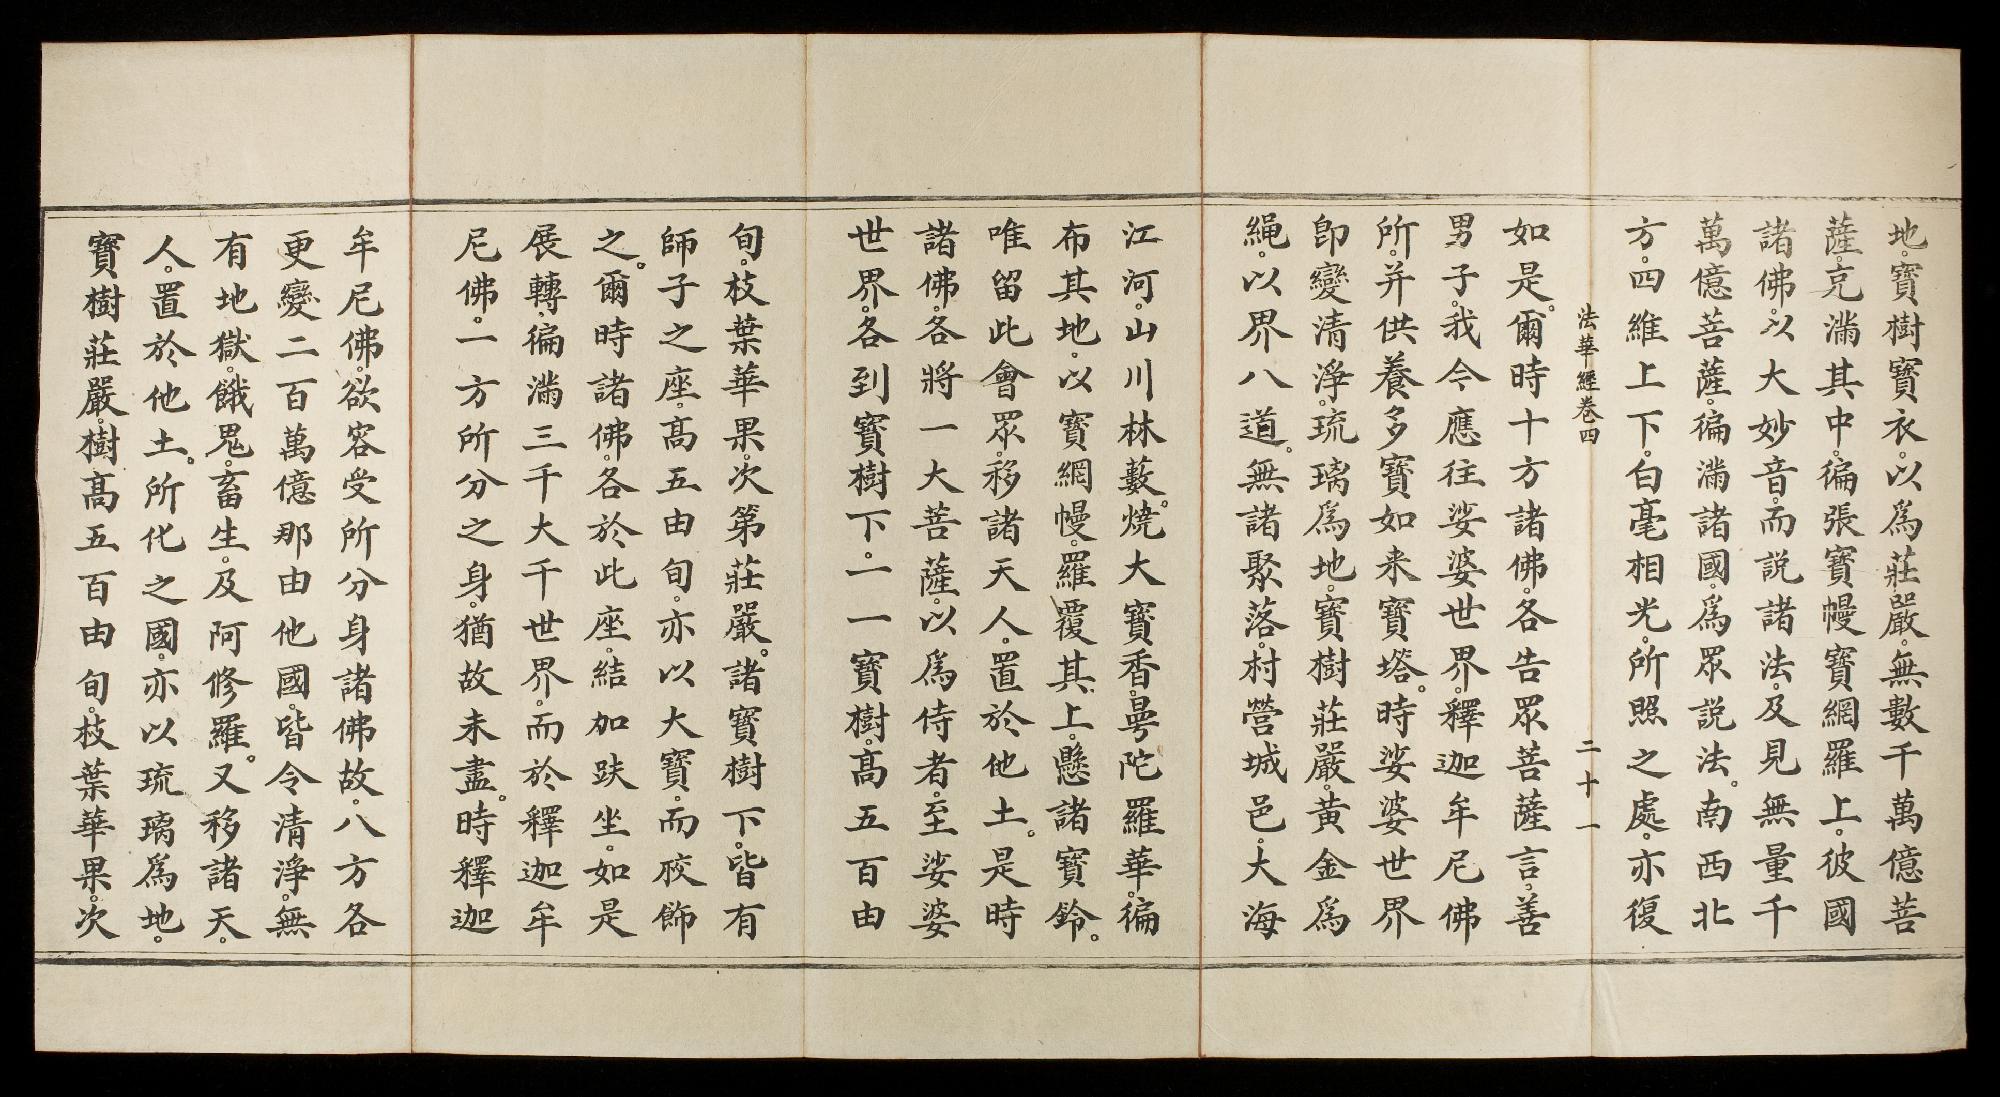 地。寶樹寶衣。以爲莊嚴。無數千萬億菩
薩。充滿其中。徧張寶幔寶網羅上。彼國
諸佛。以大妙音。而説諸法。及見無量千
萬億菩薩。徧滿諸國。爲眾説法。南西北
方。四維上下。白毫相光。所照之處。亦復
法華經卷四 二十一
如是。爾時十方諸佛。各告眾菩薩言。善
男子。我今應往娑婆世界。釋迦牟尼佛
所。并供養多寶如来寶塔。時娑婆世界
即變清淨。琉璃爲地。寶樹莊嚴。黃金爲
繩。以界八道。無諸聚落。村營城邑。大海
江河。山川林藪。燒大寶香。曼陀羅華。徧
布其地。以寶網幔。羅覆其上。懸諸寶鈴。
唯留此會眾。移諸天人。置於他土。是時
諸佛。各將一大菩薩。以爲侍者。至娑婆
世界。各到寶樹下。一一寶樹。髙五百由
旬。枝葉華果。次第莊嚴。諸寶樹下。皆有
師子之座。髙五由旬。亦以大寶。而校飾
之。爾時諸佛。各於此座。結加趺坐。如是
展轉。徧滿三千大千世界。而於釋迦牟
尼佛。一方所分之身。猶故未盡。時釋迦
牟尼佛。欲容受所分身諸佛故。八方各
更變二百萬億那由他國。皆令清淨。無
有地獄。餓鬼。畜生。及阿修羅。又移諸天
人。置於他土。所化之國。亦以琉璃爲地。
寶樹莊嚴。樹髙五百由旬。枝葉華果。次